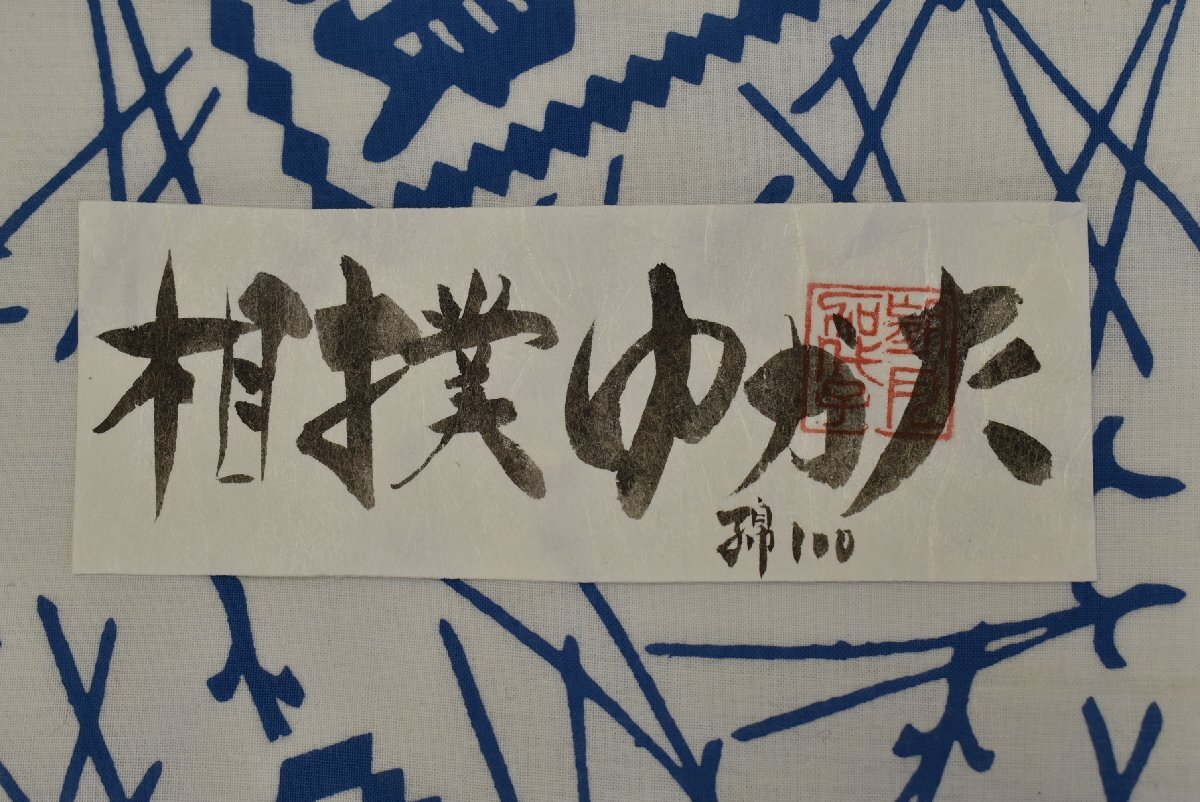 相撲ゆかた
綿100